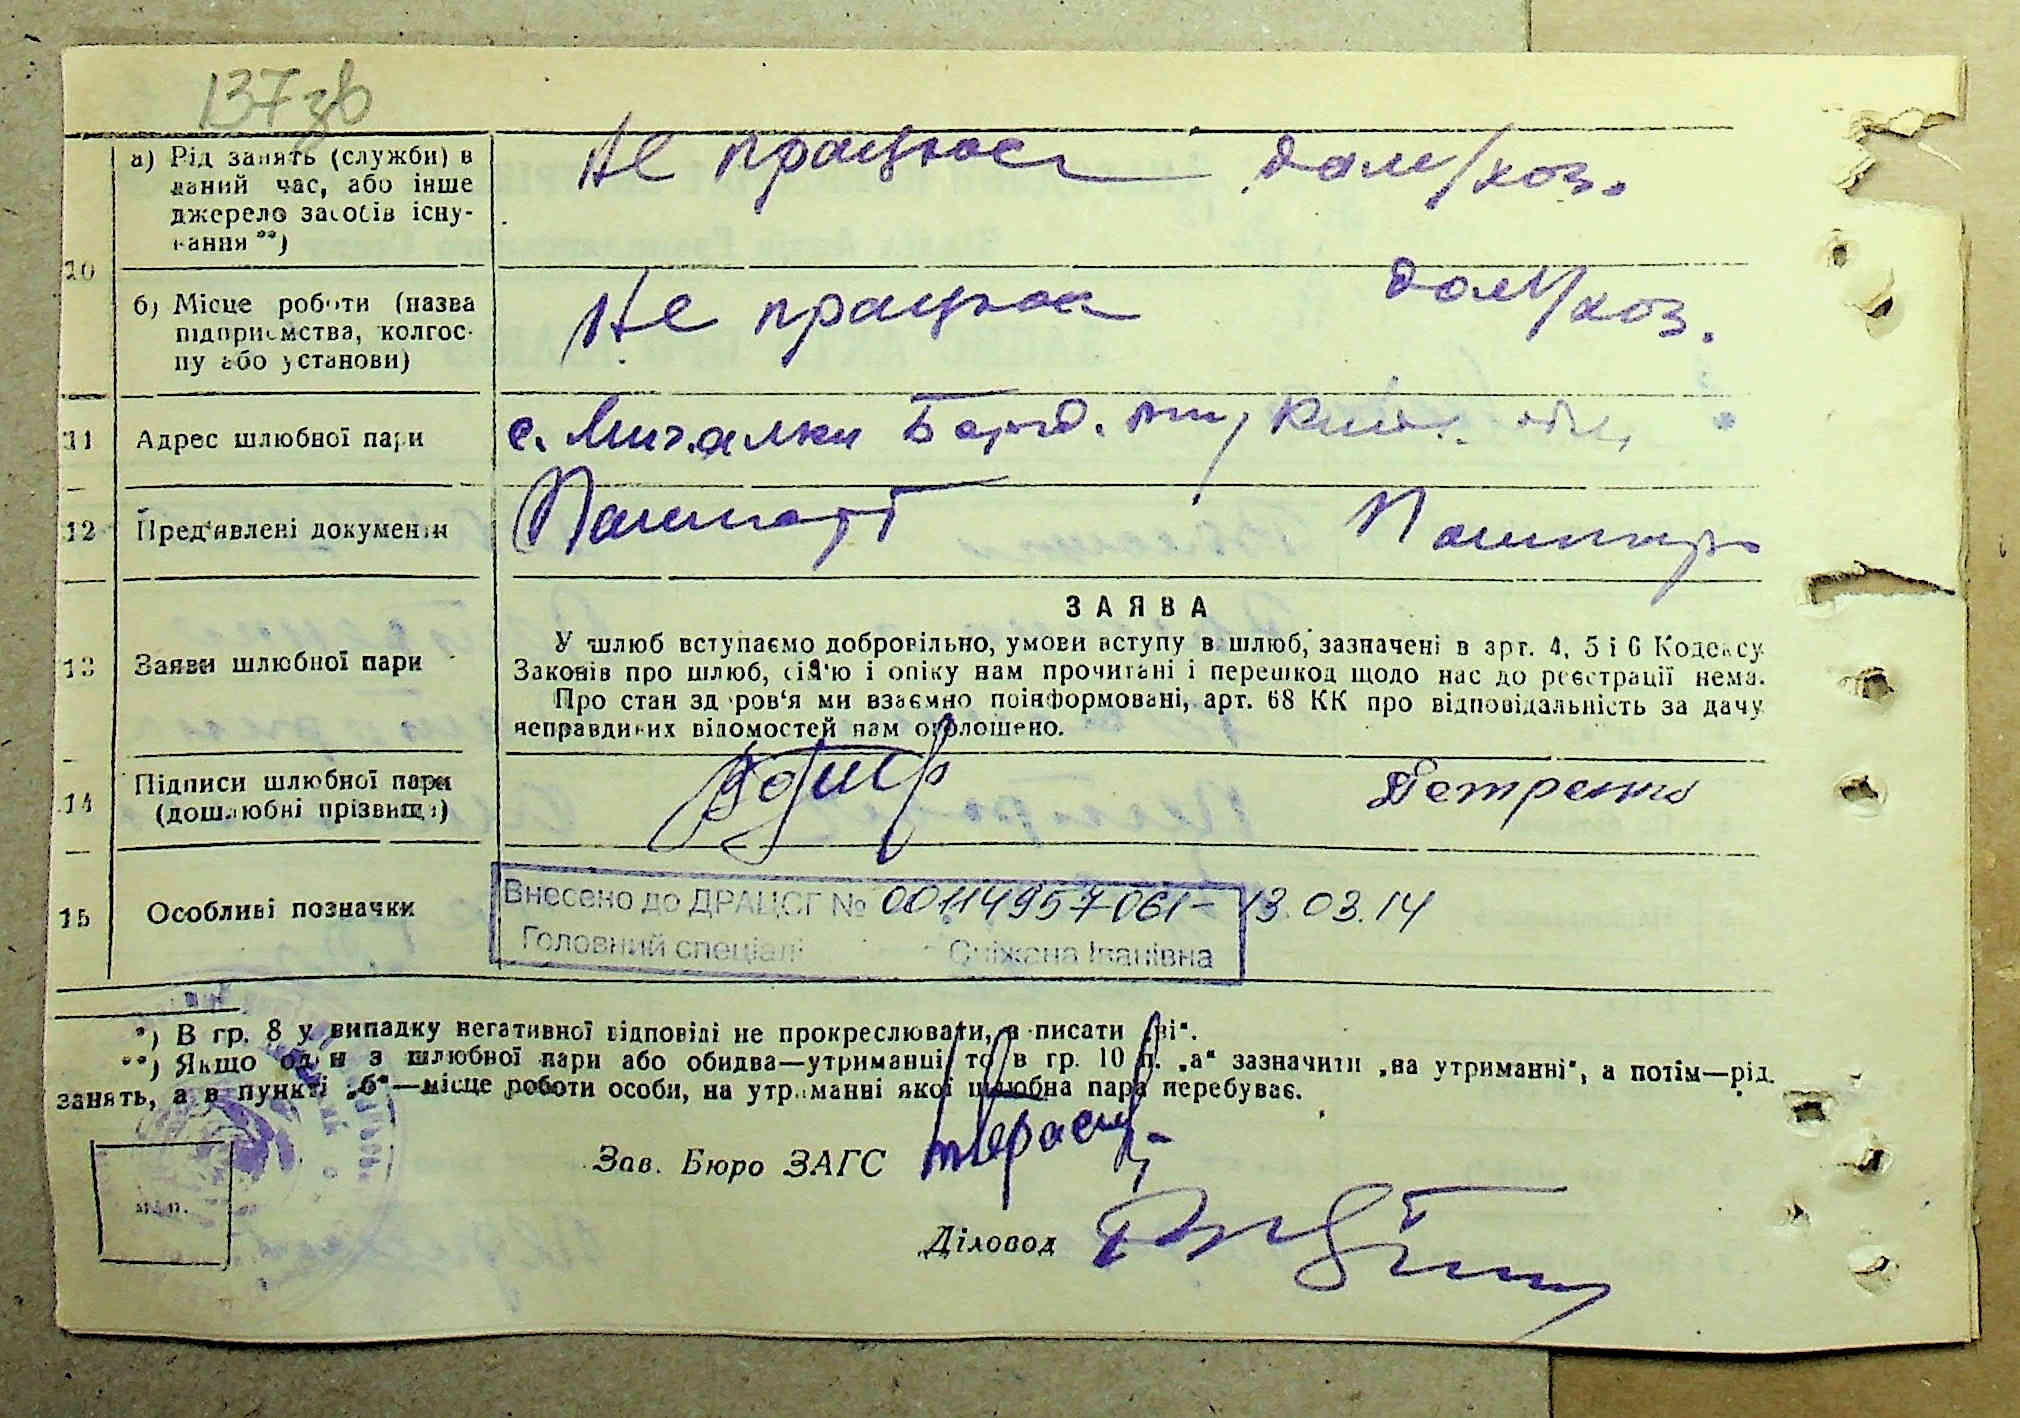 137зв
а) Рід занять (служби) в
даний час, або інше
джерело засобів існу-
вання **)
Не працює дом/хоз.
10
б) Місце роботи (назва
підприємства, колгос-
пу або установи)
Не працює дом/хоз.
11 Адрес шлюбної пари с. Мигалки Бород. обл.
12 Пред'явлені документи Паспорт Паспорт
13 Заяви шлюбної пари
ЗАЯВА
У шлюб вступаємо добровільно, умови вступу в шлюб, зазначені в арт. 4, 5 і 6 Кодексу
Законів про шлюб, сім'ю і опіку нам прочитані і перешкод щодо нас до реєстрації нема.
Про стан здоров'я ми взаємно поінформовані, арт. 68 КК про відповідальність за дачу
неправдивих відомостей нам оголошено.
14 Підписи шлюбної пари
(дошлюбні прізвища)
Петренко
15 Особливі позначки
Внесено до ДРАЦСГ № 00114957061- 13.03.14
Головний спеціалі Сніжана Іванівна
*) В гр. 8 у випадку негативної відповіді не прокреслювати, а писати „ні".
**) Якщо один з шлюбної пари або обидва—утриманці, то в гр. 10 п. „а" зазначити „на утриманні", а потім—рід
занять, а в пункті „б"—місце роботи особи, на утриманні якої шлюбна пара перебуває.
Зав. Бюро ЗАГС
М.П.
Діловод